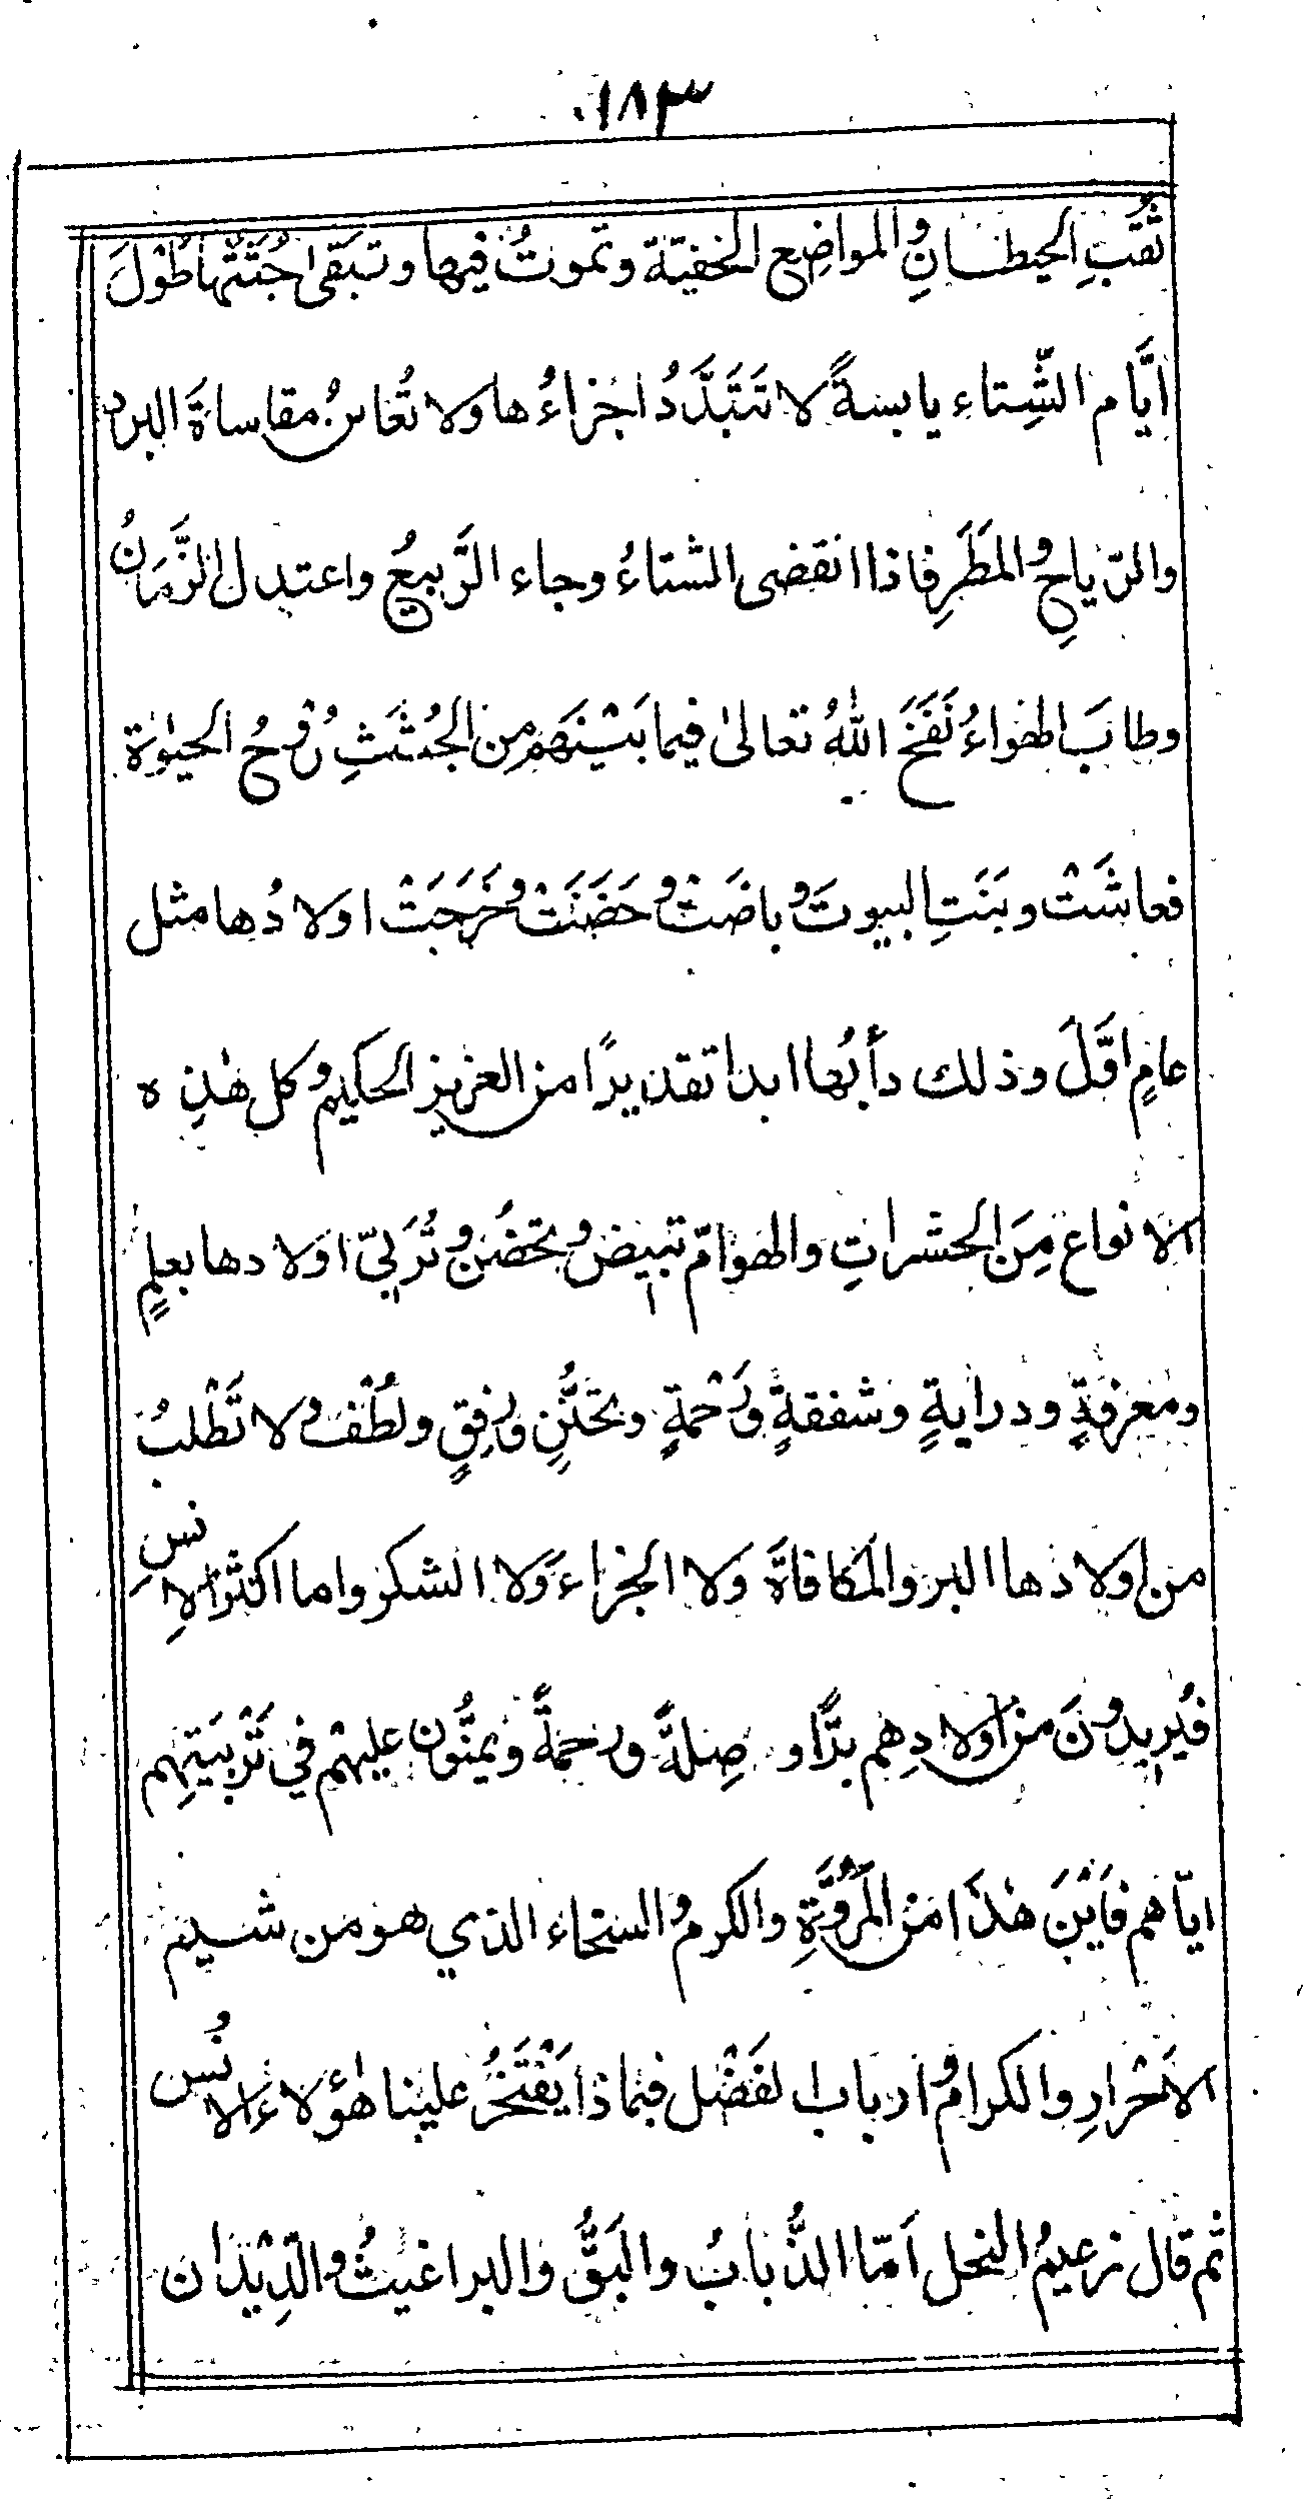 ١٨٣
ثُقُبِ الحيطانِ والمواضِعِ الخفيّة وتموتُ فيها وتبقى جُثَّتُها طُوْلَ
ايَّام الشِّتاء يابسةً لا تتبَدَّدُ اجزاءُها ولا تُعاين مقاساةَ البرد
والرّياحِ والمطَرِ فاذا انقضى الشتاءُ وجاء الرَّبيعُ واعتدل الزَّمَانُ
وطابَ الهواءُ نَفَخَ اللّٰهُ تعالىٰ فيما بَيْنَهم مِن الجُثَثِ رُوحُ الحيٰوة
فعاشَتْ وبَنَتِ البيوتَ وباضَتْ وحَضَنَتْ وخَرَجَتْ اولادُها مثل
عامٍ اوَّلَ وذلك دأبُها ابدا تقديرًا من العزيز الحكيم وكل هٰذِه
الانواع مِنَ الحشراتِ والهوَامّ تبيض وتحضُن وتُرَبِّي اولادها بعلمٍ
ومَعرفةٍ ودرايةٍ وشفقةٍ ورَحْمةٍ وتحنُّنٍ ورِفقٍ ولُطْف ولا تَطْلبُ
من اولادها البر والمكافاةَ ولا الجزاءَ ولا الشكر واما اكثر الاِنسِ
فيُريدُونَ من اولادِهم برًّا و صِلةً ورحمةً ويمنُّون عليهْم في تَرْبيَتِهم
ايّاهم فاَيْنَ هٰذا من المُرُوَّةِ والكرم والسخاء الذي هو من شيم
الاَحْرارِ والكرام وارباب الفَضْل فبماذا يَفْتَخِرُ علينا هٰؤلاءِ الانُس
ثم قال زعيمُ النحل اَمّا الذُّبابُ والبَقُّ والبراغيثُ والدِّيْدان